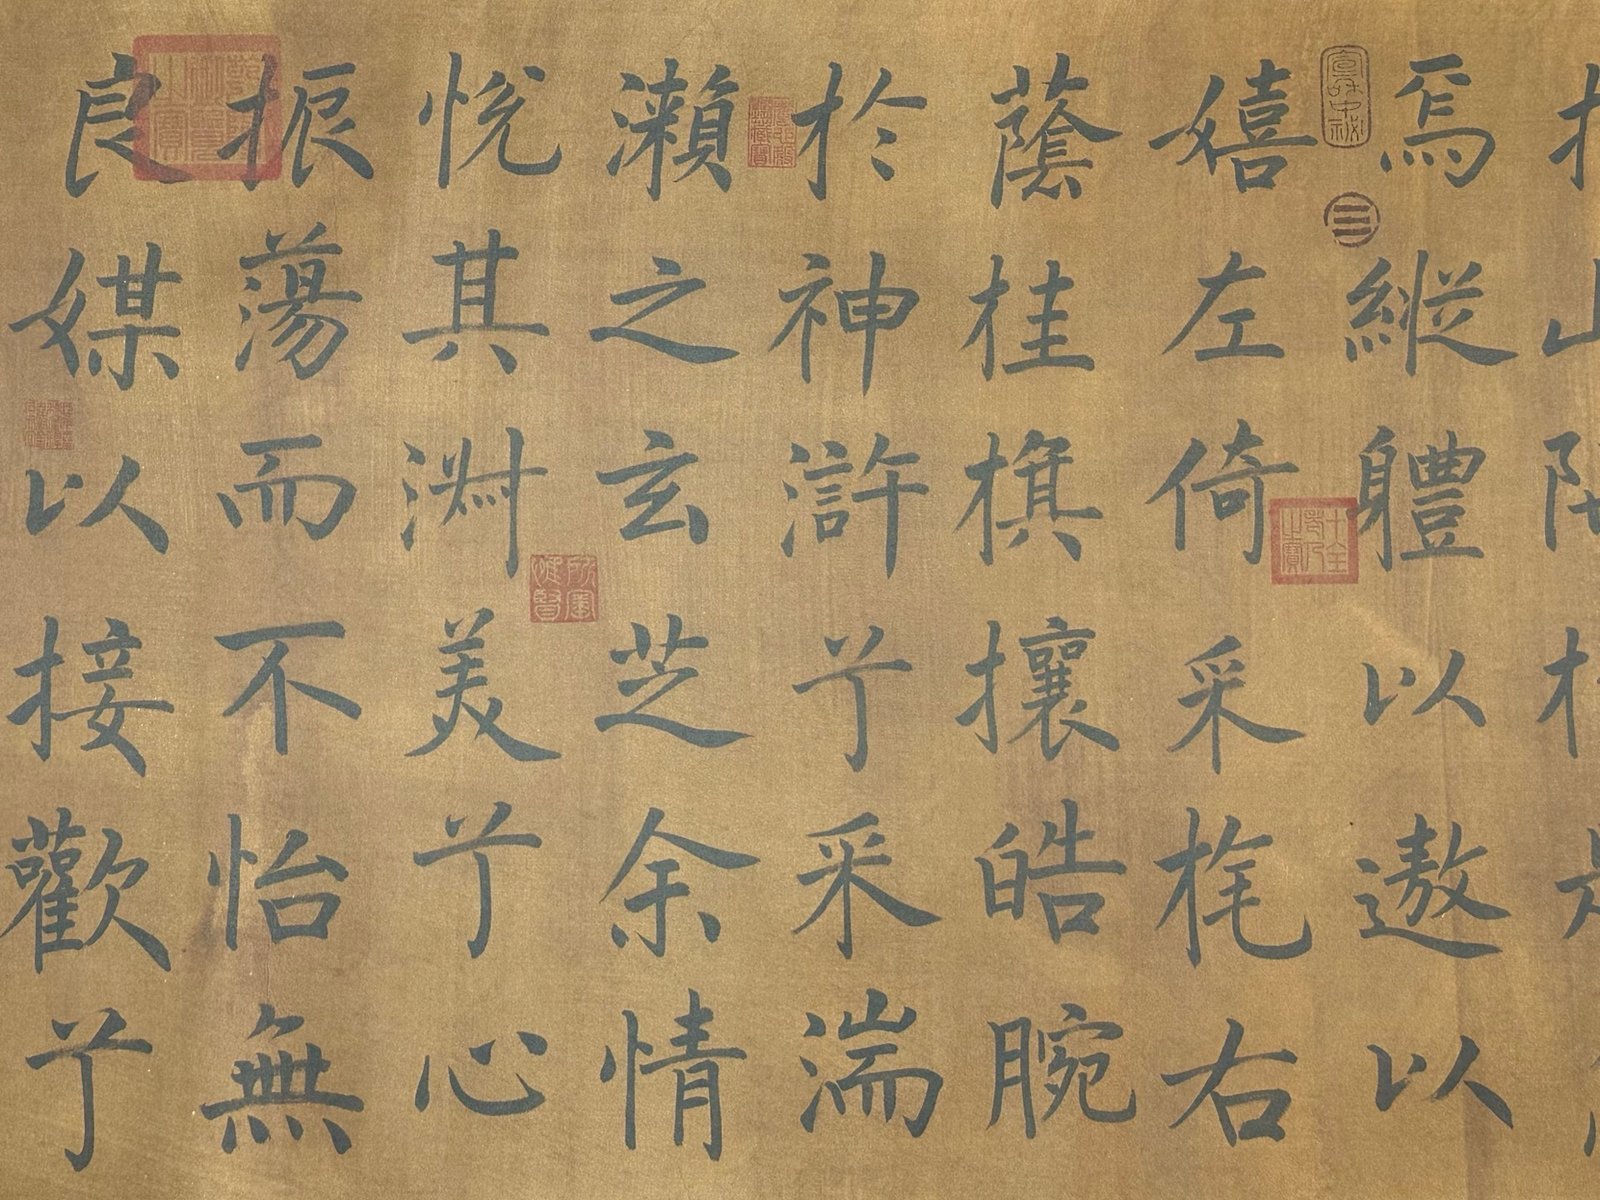 焉縱體以遨以
嬉左倚采旄右
蔭桂旗攘皓腕
於神滸兮采湍
瀨之玄芝余情
悅其淑美兮心
振蕩而不怡無
良媒以接歡兮